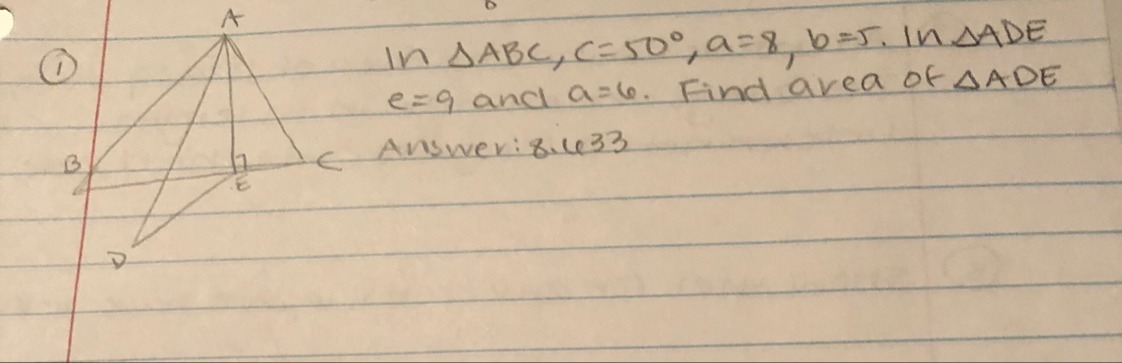 A
① In △ABC, c=50°, a=8, b=5. In △ADE
e=9 and a=6. Find area of △ADE
B
E
C
Answer: 8.633
D